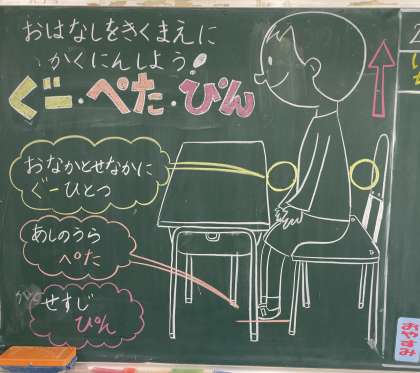 おはなしをきくまえに
かくにんしよう!
ぐー・ぺた・ぴん
おなかとせなかに
ぐーひとつ
あしのうら
ぺた
せすじ
ぴん
おやすみ